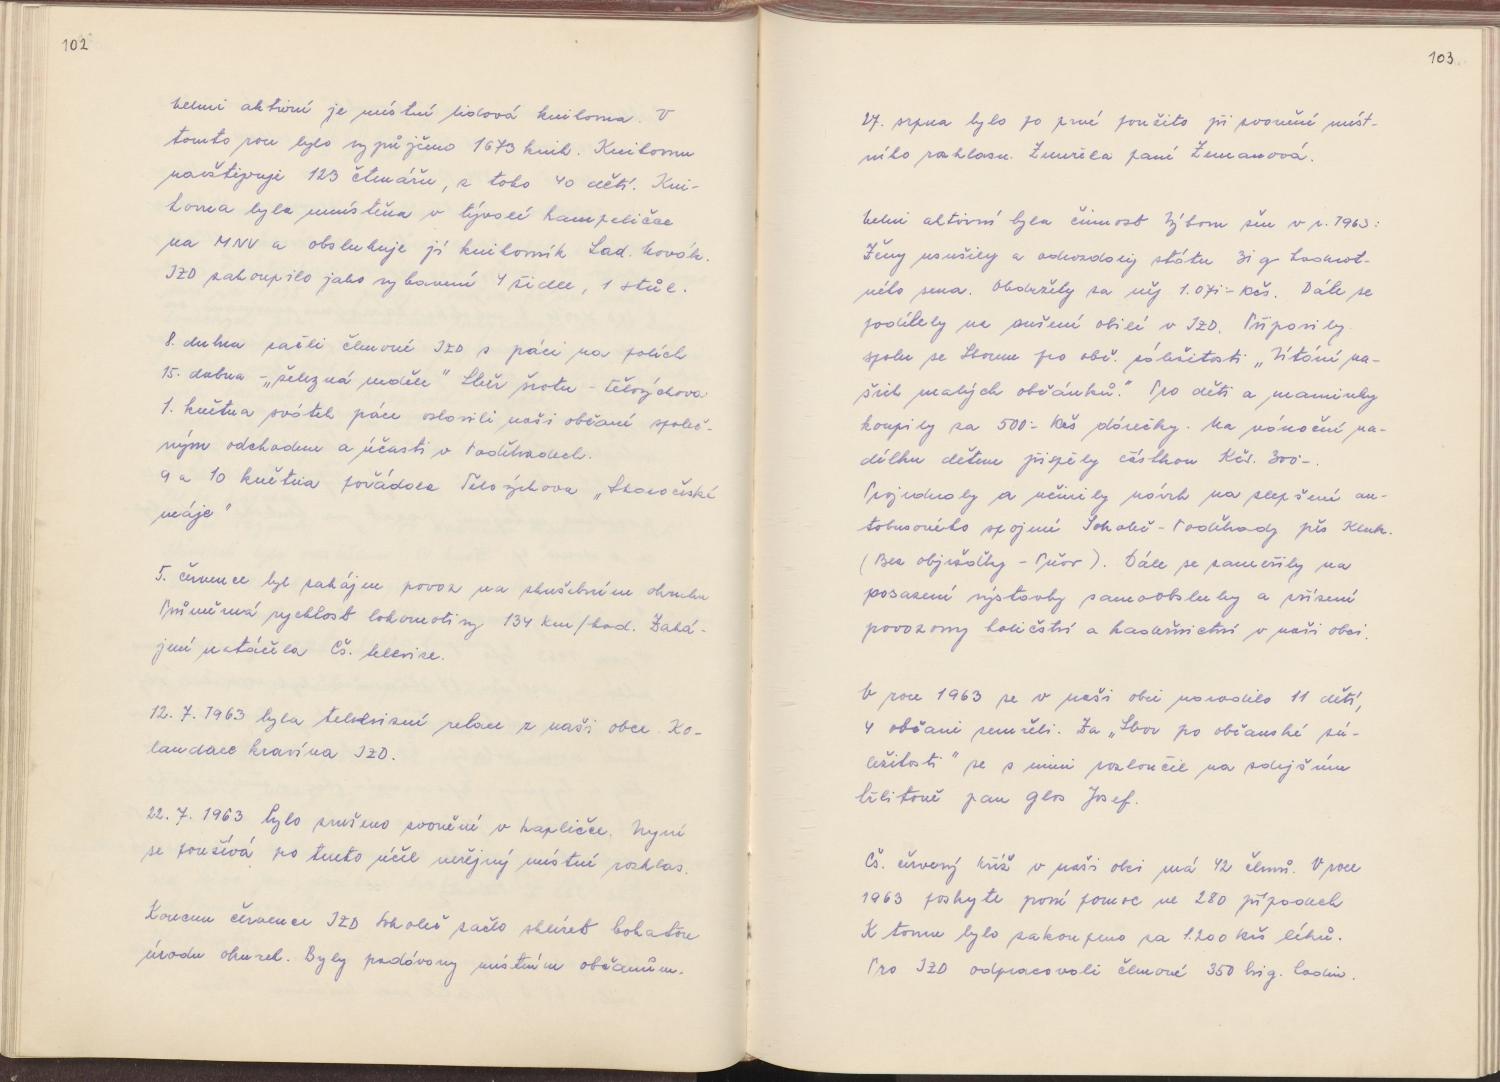 102
Velmi aktivní je místní lidová knihovna. V
tomto roce bylo vypůjčeno 1673 knih. Knihovnu
navštěvuje 123 čtenářů, z toho 40 dětí. Kni-
hovna byla umístěna v bývalé kampeličce
na MNV a obsluhuje ji knihovník Lad. Novák.
JZD zakoupilo jako vybavení 4 židle, 1 stůl.
8. dubna začli členové JZD s prací na polích
15. dubna - „železná neděle" Sběr šrotu - tělovýchova
1. května svátek práce oslavili naši občané společ-
ným odchodem a účastí v Poděbradech.
9 a 10 května pořádala Tělovýchova „Staročeské
máje"
5. července byl zahájen provoz na zkušebním okruhu
Průměrná rychlost lokomotivy 134 km/hod. Zahá-
jení natáčela Čs. televize.
12. 7. 1963 byla televisní relace z naší obce. Ko-
laudace kravína JZD.
22. 7. 1963 bylo zrušeno zvonění v kapličce. Nyní
se používá pro tento účel veřejný místní rozhlas.
Koncem července JZD Sokoleč začlo sklízet bohatou
úrodu okurek. Byly prodávány místním občanům.
103
27. srpna bylo po prvé použito při zvonění míst-
ního rozhlasu. Zemřela paní Zemanová.
Velmi aktivní byla činnost Výboru žen v r. 1963:
Ženy usušily a odevzdaly státu 31 q hodnot-
ného sena. Obdržely za něj 1.071.- Kčs. Dále se
podílely na sušení obilí v JZD. Připravily
spolu se Sborem pro obč. záležitosti „Vítání na-
šich malých občánků." Pro děti a maminky
koupily za 500.- Kčs dárečky. Na vánoční na-
dílku dětem přispěly částkou Kčs. 300-.
Projednaly a učinily návrh na zlepšení au-
tobusového spojení Sokoleč - Poděbrady přes Kluk.
(Bez objížďky - Pňov). Dále se zaměřily na
prosazení výstavby samoobsluhy a zřízení
provozovny holičství a kadeřnictví v naší obci.
V roce 1963 se v naší obci narodilo 11 dětí,
4 občané zemřeli. Za „Sbor po občanské zá-
ležitosti" se s nimi rozloučil na zdejším
hřbitově pan Glos Josef.
Čs. červený kříž v naší obci má 42 členů. V roce
1963 poskytl první pomoc ve 280 případech
K tomu bylo zakoupeno za 1.200 Kčs léků.
Pro JZD odpracovali členové 350 brig. hodin.